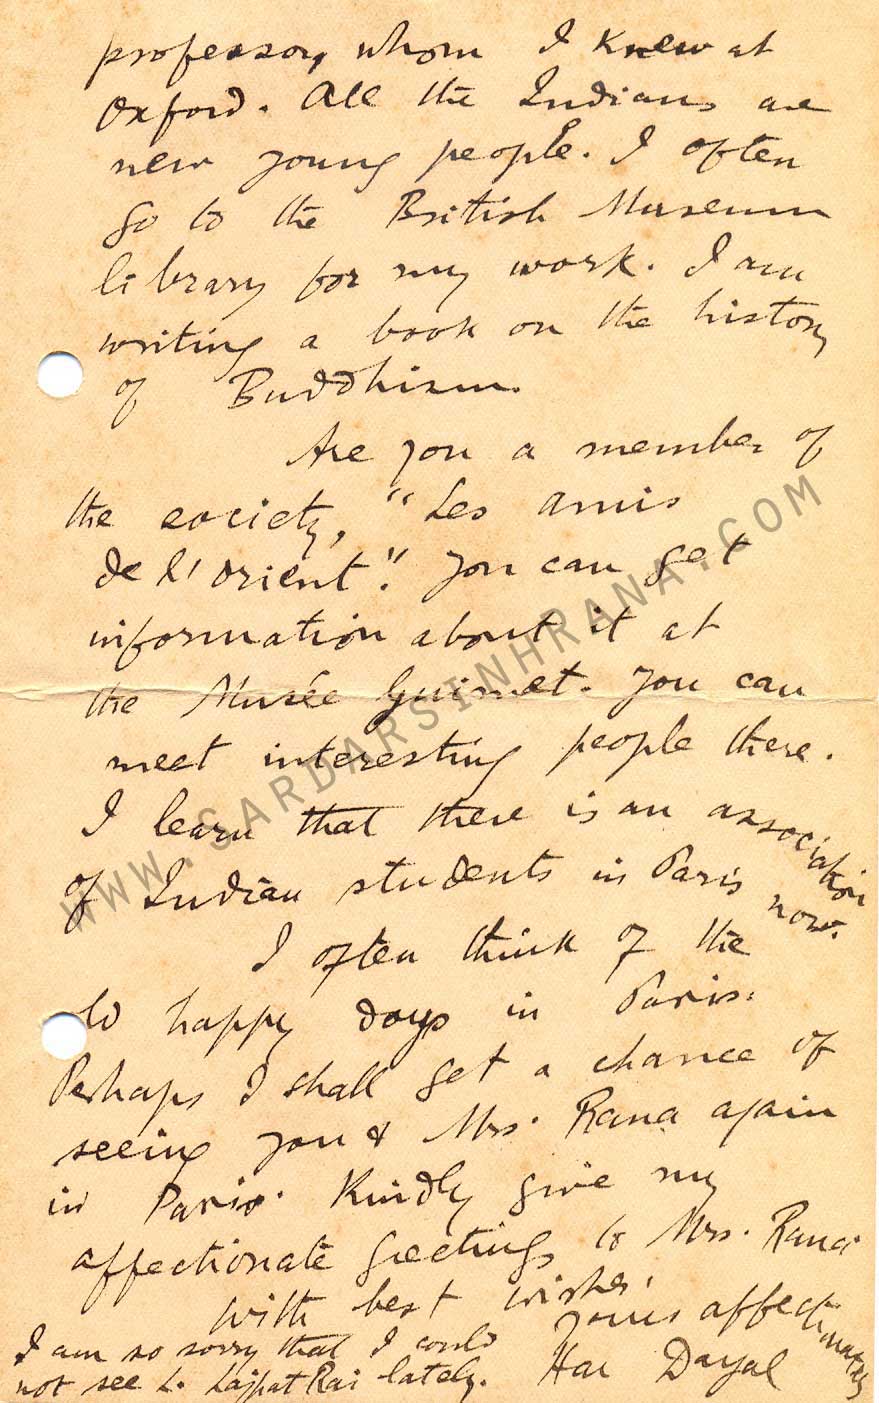 professor, whom I knew at
Oxford. All the Indians are
new young people. I often
go to the British Museum
library for my work. I am
writing a book on the history
of Buddhism.
Are you a member of
the society, "Les amis
de l'orient". You can get
information about it at
the Musée Guimet. You can
meet interesting people there.
I learn that there is an association
of Indian students in Paris now.
I often think of the
old happy days in Paris.
Perhaps I shall get a chance of
seeing you & Mrs. Rana again
in Paris. Kindly give my
affectionate greetings to Mrs. Rana.
With best wishes.
Yours affectionately
Har Dayal
I am so sorry that I could
not see L. Lajpat Rai lately.
WWW.SARDARSINHRANA.COM